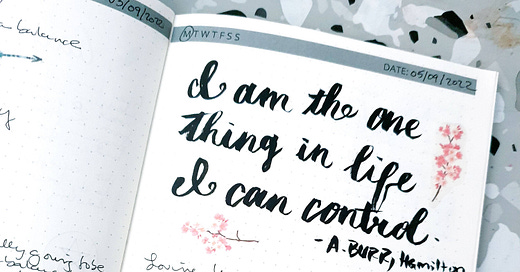 03/09/2022
a balance
MTWTFSS
DATE: 05/09/2022
I am the one
thing in life
I can control.
- A. BURR, Hamilton